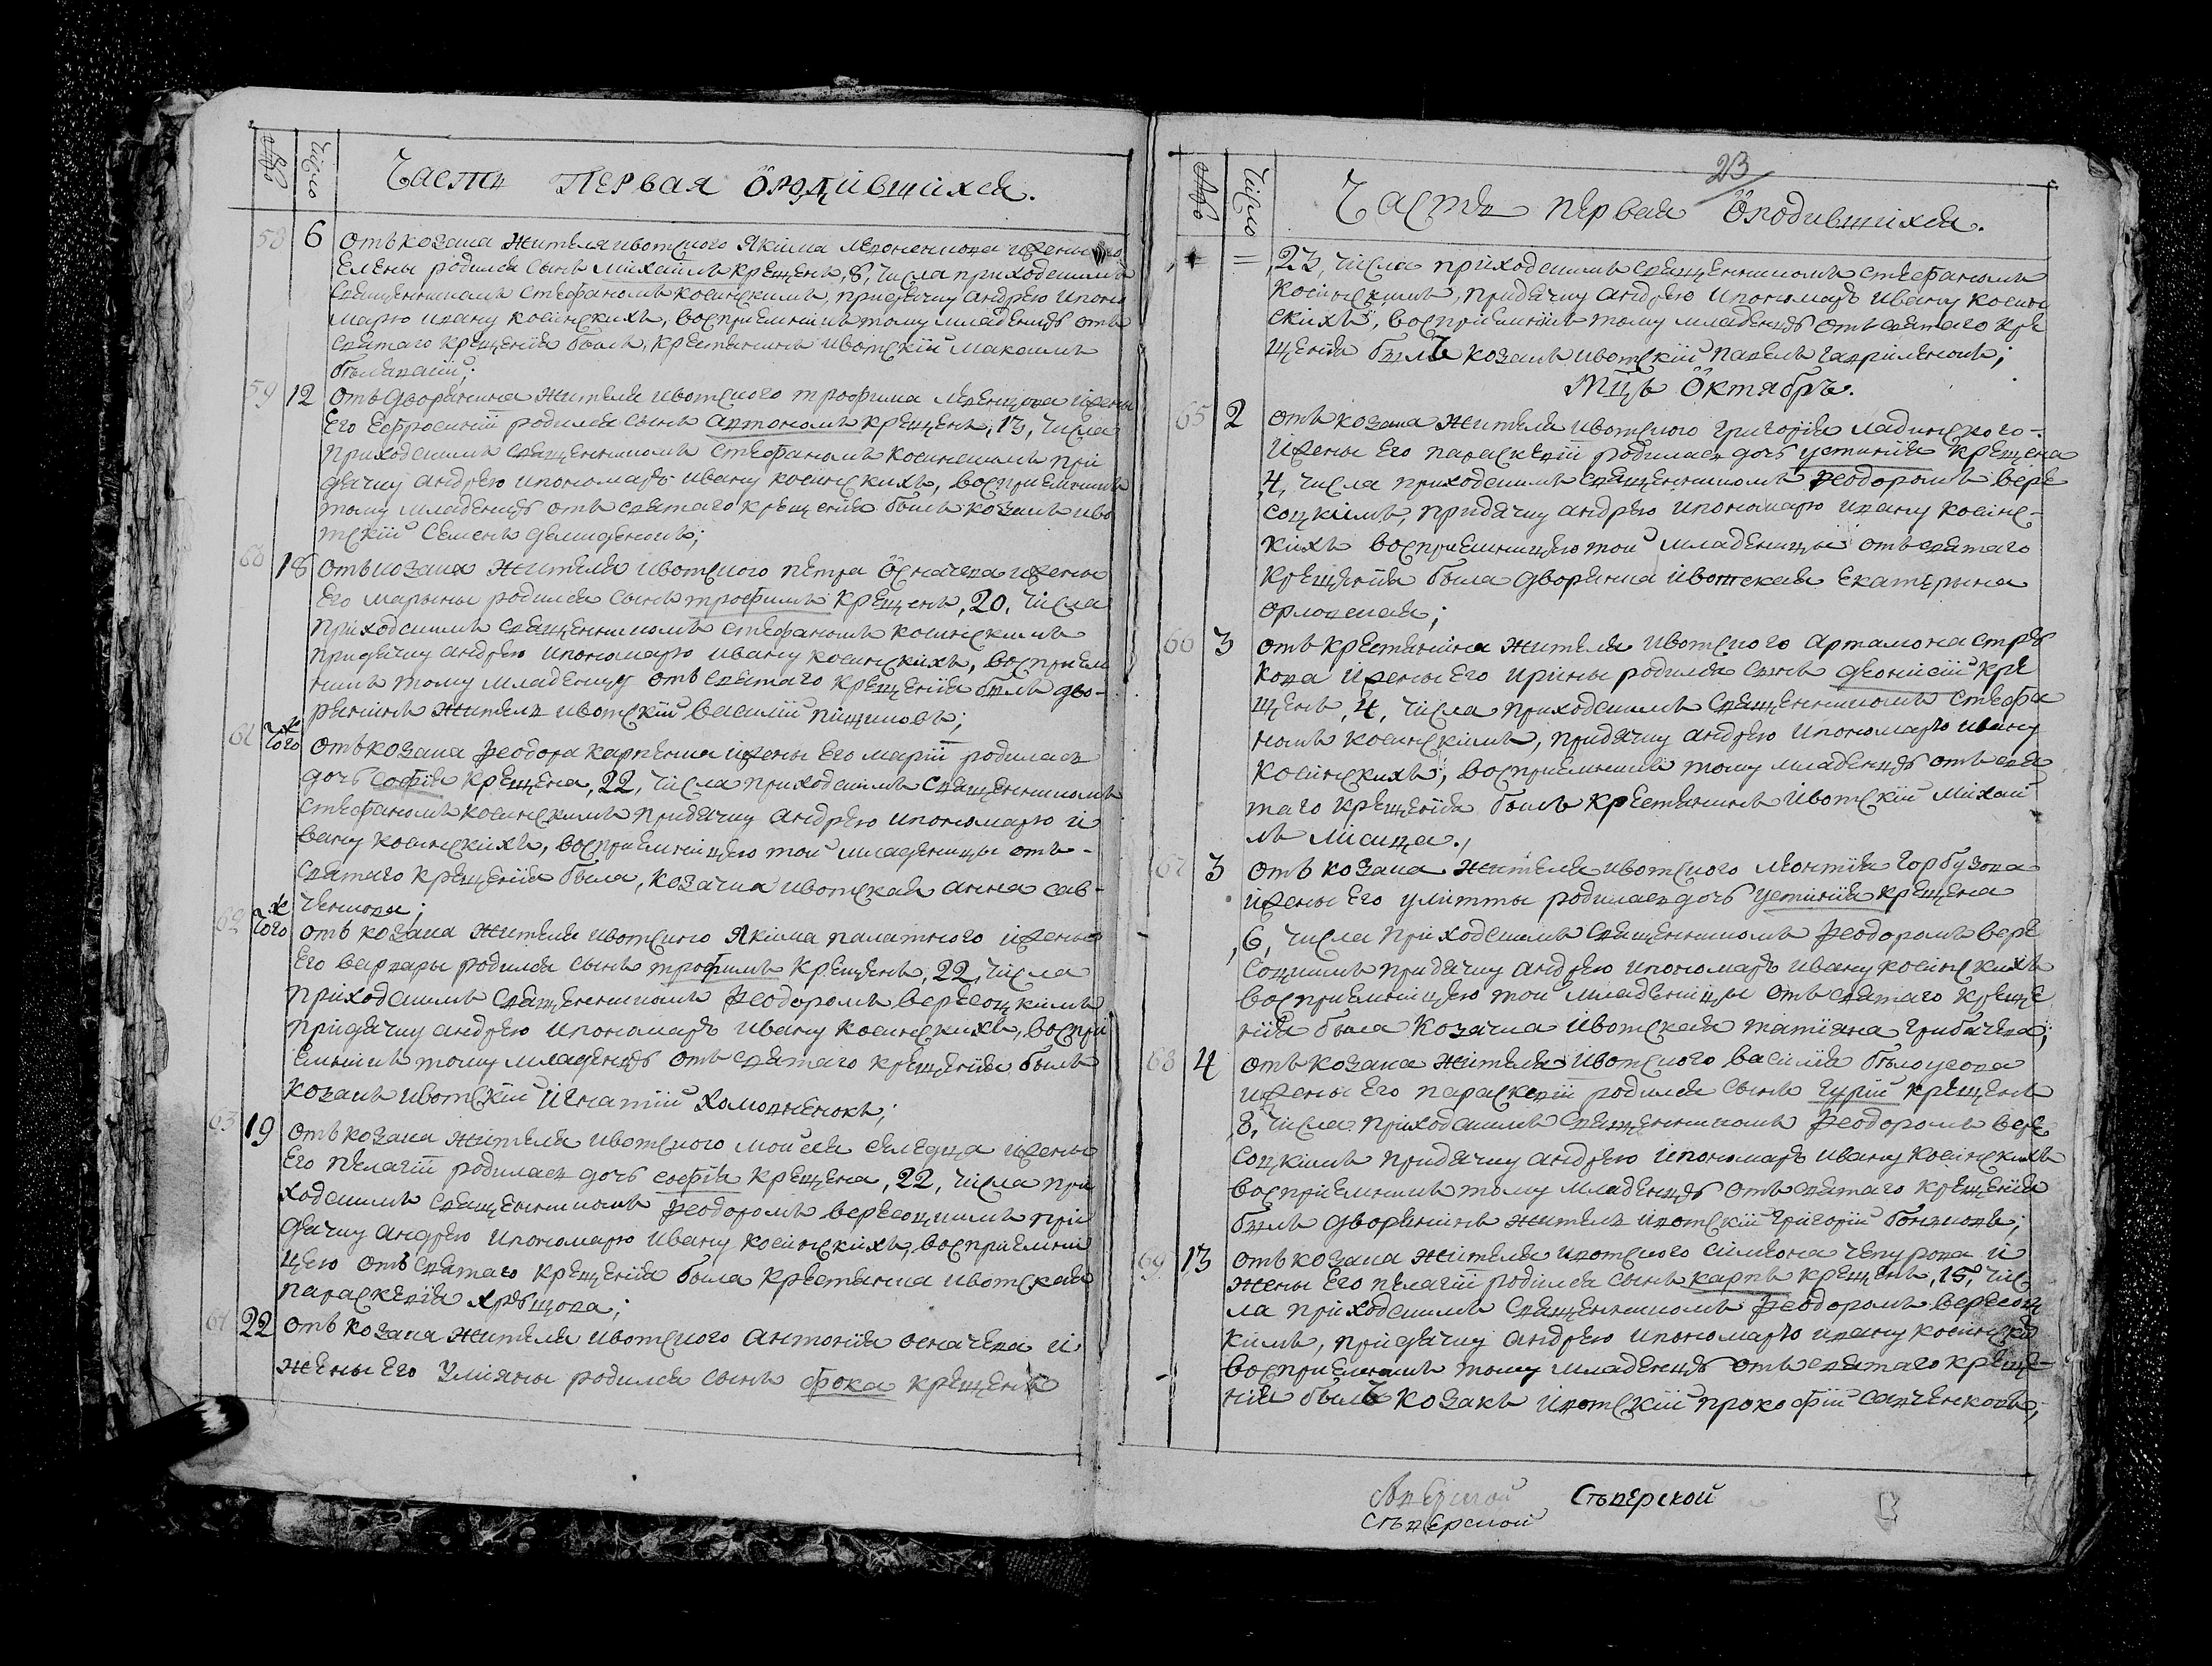 Число
Часть первая ŏродившихся.
58 6 отъ козака жителя ивотского Якима Левоненкова и жены его
Елены родился сынъ Михаилъ крещенъ, 8, числа приходскимъ
священникомъ стефаномъ косинскимъ, при дячку андрею ипоно
марю ивану косинскихъ, восприемникъ тому младенцѣ отъ
святаго крещенія былъ, крестянинъ ивотскій Максимъ
59 12 отъ дворянина жителя ивотского трофима Левенцова и жены
Его Ефросиніи родился сынъ артономъ крещенъ, 13, числа
приходскимъ священникомъ стефаномъ косинскимъ при
дячку андрею ипономарѣ ивану косинскихъ, восприемникъ
тому младенцѣ отъ святаго крещенія былъ козакъ иво
тскій Семенъ демиденокъ;
60 18 отъ козака жителя ивотского петра Осначева и жены
Его марыны родился сынъ трофимъ крещенъ, 20, числа
приходскимъ священникомъ стефаномъ косинскимъ
при дячку андрею ипономарю ивану косинскихъ, восприем
никъ тому младенцу отъ святаго крещенія былъ дво-
рянинъ житель ивотскій василій пищиковъ;
61 тогож отъ козака феодора карпенка и жены Его маріи родилась
дочь софія крещена, 22, числа приходскимъ священникомъ
стефаномъ косинскимъ при дячку андрею ипономарю и
вану косинскихъ, восприемницею той младеницы отъ-
святаго крещенія была, козачка ивотская анна сав-
ченкова;
62 тогож отъ козака жителя ивотского Якима палатного и жены
Его варвары родился сынъ трофимъ крещенъ, 22, числа
приходскимъ священникомъ феодоромъ вересоцкимъ
при дячку андрею ипономарѣ ивану косинскихъ, воспри
емникъ тому младенцѣ отъ святаго крещенія былъ
козакъ ивотскій Игнатій Холодненокъ;
63 19 отъ козака жителя ивотского моисея селедца и жены
Его пелагіи родилась дочь софія крещена, 22, числа при
ходскимъ священникомъ феодоромъ вересоцкимъ при
дячку андрею ипономарю ивану косинскихъ, восприемни
цею отъ святаго крещенія была крестянка ивотская
параскевія хребцова;
64 22 отъ козака жителя ивотского антонія осначева и
жены его Улияны родился сынъ фока крещенъ
23
Число
Часть первая ŏродившихся.
23, числа приходскимъ священникомъ стефаномъ
косинскимъ, при дячку андрею ипономарѣ ивану косин
скихъ, восприемникъ тому младенцѣ отъ святаго кре
щенія былъ козакъ ивотскій павелъ гавриленокъ;
Мцъ Октябрь.
65 2 отъ козака жителя ивотского григорія ладинского-
и жены Его параскевіи родилась дочь устинія крещена
4, числа приходскимъ священникомъ феодоромъ вере
соцкимъ, при дячку андрею ипономарю ивану косинс-
кихъ восприемницею той младеницы отъ святаго
крещенія была дворянка ивотская Екатерына
орловская;
66 3 отъ крестянина жителя ивотского Артамона стрѣ
кова и жены Его ирины родился сынъ деонисій кре
щенъ, 4, числа приходскимъ священникомъ стефа
номъ косинскимъ, при дячку андрею ипономарю ивану
косинскихъ, восприемникъ тому младенцѣ отъ свя
таго крещенія былъ крестянинъ ивотскій Михаи
лъ Лисица.,
67 3 отъ козака жителя ивотского Леонтія горбузова
и жены Его улитты родилась дочь устинія крещена
, 6, числа приходскимъ священникомъ феодоромъ вере
соцкимъ при дячку андрею ипономарѣ ивану косинскихъ
восприемницею той младеницы отъ святаго креще
нія была козачка ивотская татіяна грибачева;
68 4 отъ козака жителя ивотского василія бѣлоусова
и жены Его параскевіи родился сынъ гурій крещенъ
,8, числа приходскимъ священникомъ феодоромъ вере
соцкимъ при дячку андрею ипономарѣ ивану косинскихъ
восприемникъ тому младенцѣ отъ святаго крещенія
былъ дворянинъ житель ивотскій григорій
69 13 отъ козака жителя ивотского симеона чепурова и
жены Его пелагіи родился сынъ карпъ крещенъ, 15, чис
ла приходскимъ священникомъ феодоромъ вересоц
кимъ, при дячку андрею ипономарю ивану косински
восприемникъ тому младенцѣ отъ святаго креще-
нія былъ козакъ ивотскій прокофій савченковъ;
Сѣверской
Сѣверской